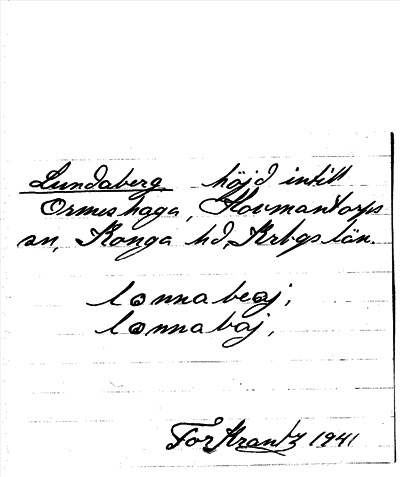 Lundaberg höjd intill
Ormeshaga, Hovmantorps
sn, Konga hd, Krbgs län.
lønnabeøj;
lønnabäj,
Tor Krantz 1941